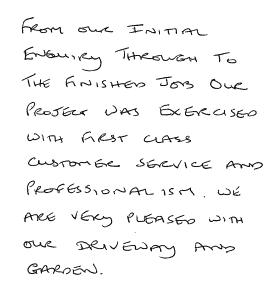 FROM OUR INITIAL
ENQUIRY THROUGH TO
THE FINISHED JOB OUR
PROJECT WAS EXERCISED
WITH FIRST CLASS
CUSTOMER SERVICE AND
PROFESSIONALISM. WE
ARE VERY PLEASED WITH
OUR DRIVEWAY AND
GARDEN.